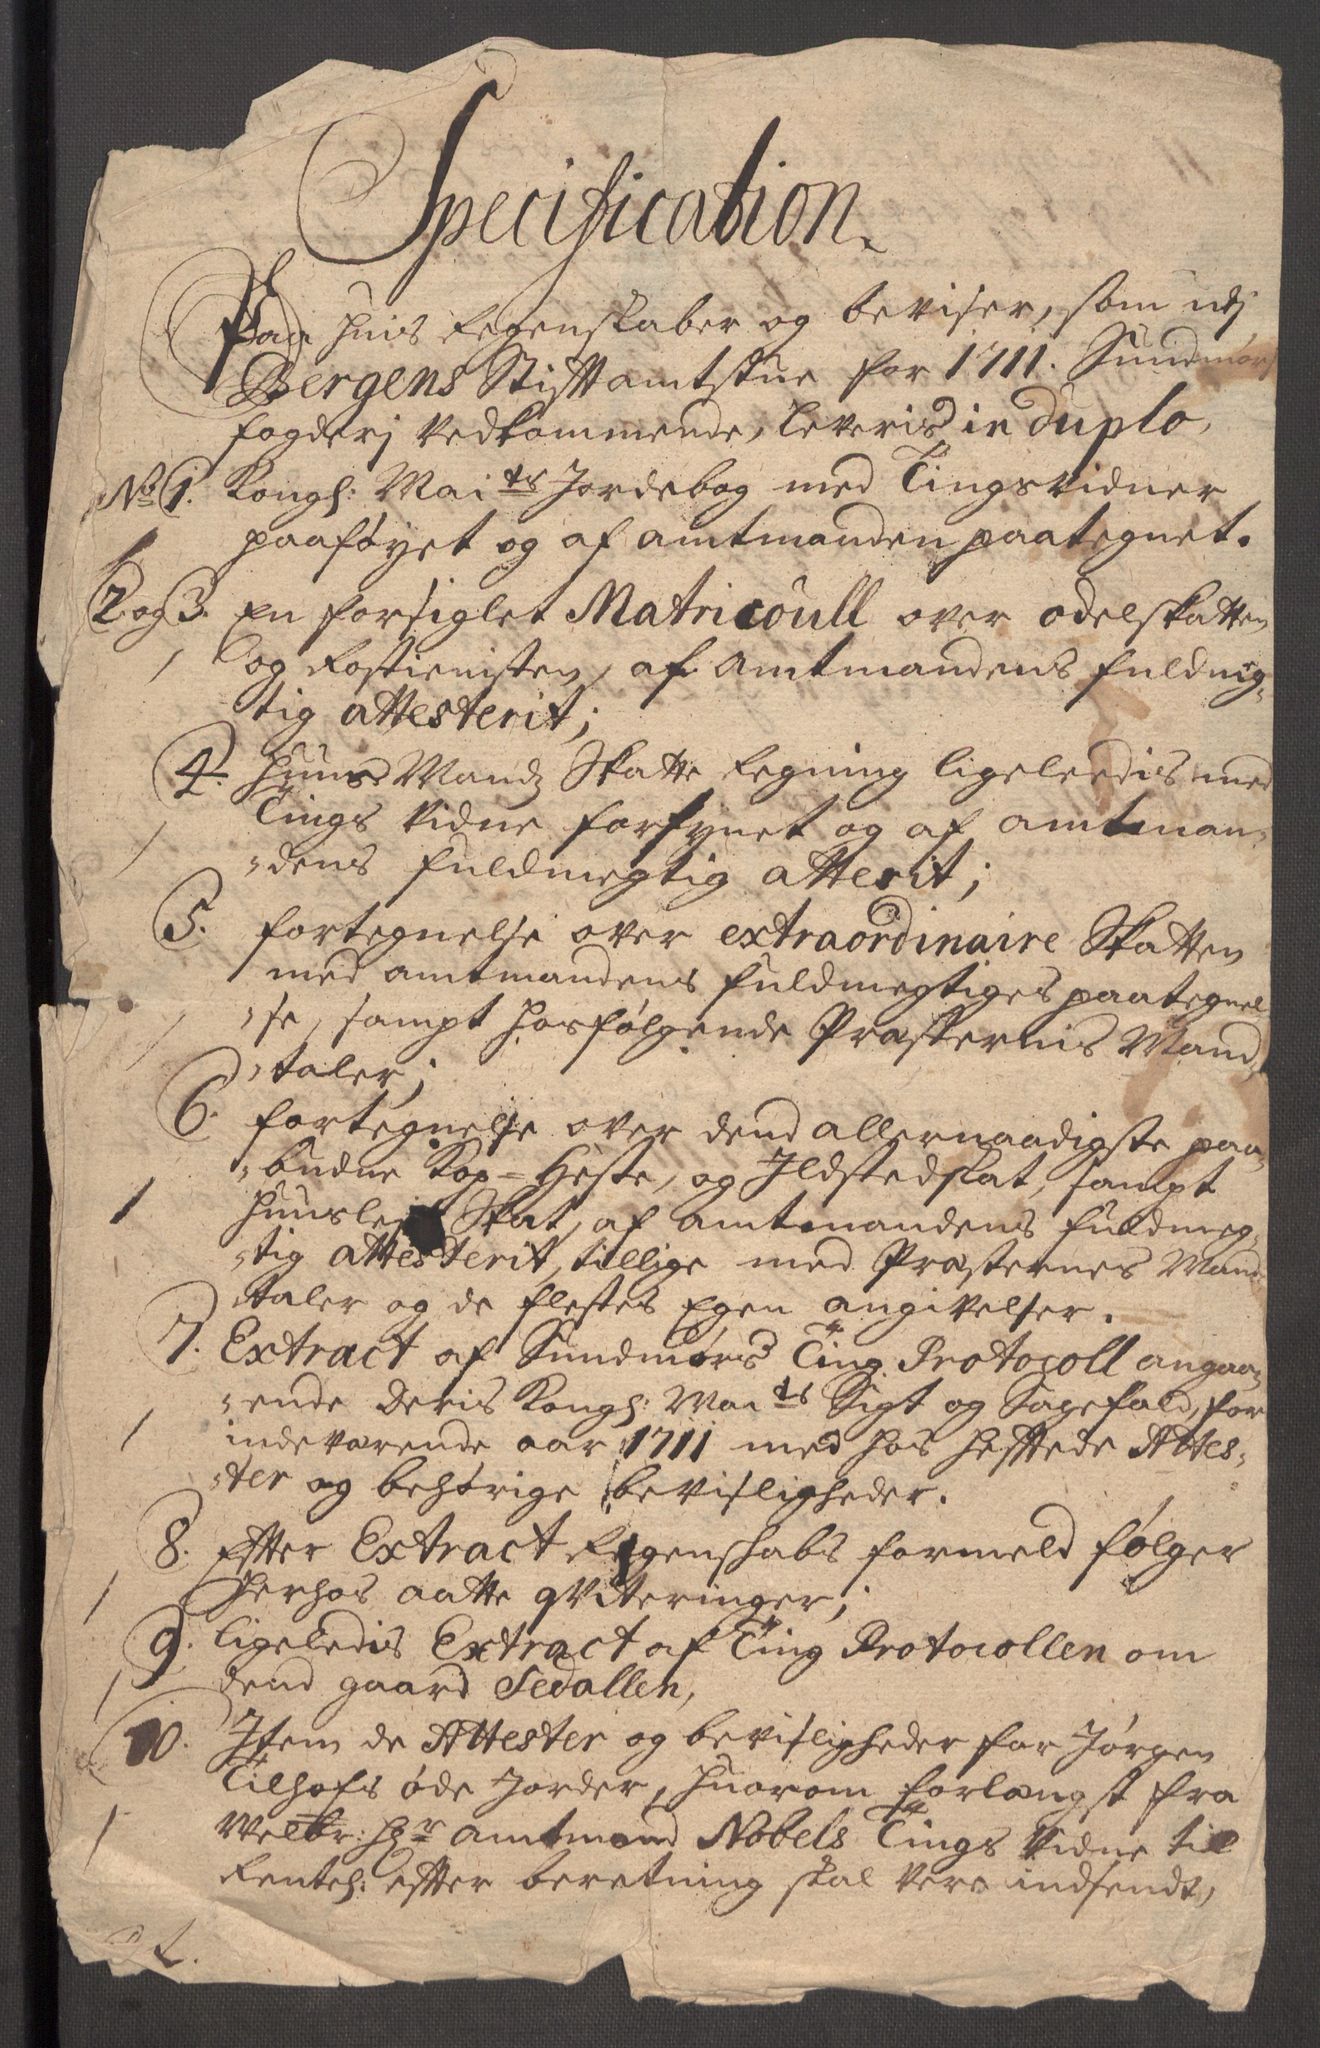 Specification.
Paa huis Regenskaber og beviser, som udj
Bergens Stifftamtstue for 1711. Sundmørs
fogderj vedkommende, leveris in duplo,
No 1. Kongl: Mai ts Jordebog med Tingsvidner
paaføyet og af amtmanden paategnet.
2 og 3. En forsiglet Matricull over odelskatten
og Rostienisten, af amtmandens fuldmeg-
tig attesterit;
4. Huus Mandz Skatte Regning ligeleedis med
Tings Vidne forsynet og af amtman-
-dens fuldmegtig atterit;
5. fortegnelse over extraordinaire Skatten
med amtmandens fuldmegtiges paategnel
-se, sampt hosfølgende Præsternis Mand-
-taler;
6. fortegnelse over dend allernaadigste paa-
-budne Kop-Heste, og Ildstedskat, sampt
Skat, af amtmandens fuldmeg-
-tig attesterit, tillige med Præsternes Mand
-taler og de flestes Egen angivelser.
7. Extract af Sundmørs Ting Protocoll angaa-
-ende deris Kongl: Mai ts Sigt og Sagefald, for
indeværende aar 1711 med hos hefftede Attes-
-ter og behørige bevisligheder.
8. Effter Extract Regenskabs formeld følger
herhos aatte qviteringer;
9. ligeledis Extract af Ting Protocollen om
dend gaard Sedallen,
10. Item de Attester og bevisligheder for Jørgen
Tilhofs øde Jorder, huorom forlængst fra
Welbr: Hr amtmand Nobels Tings Vidne till
Renteh: effter beretning skal vere indsendt,